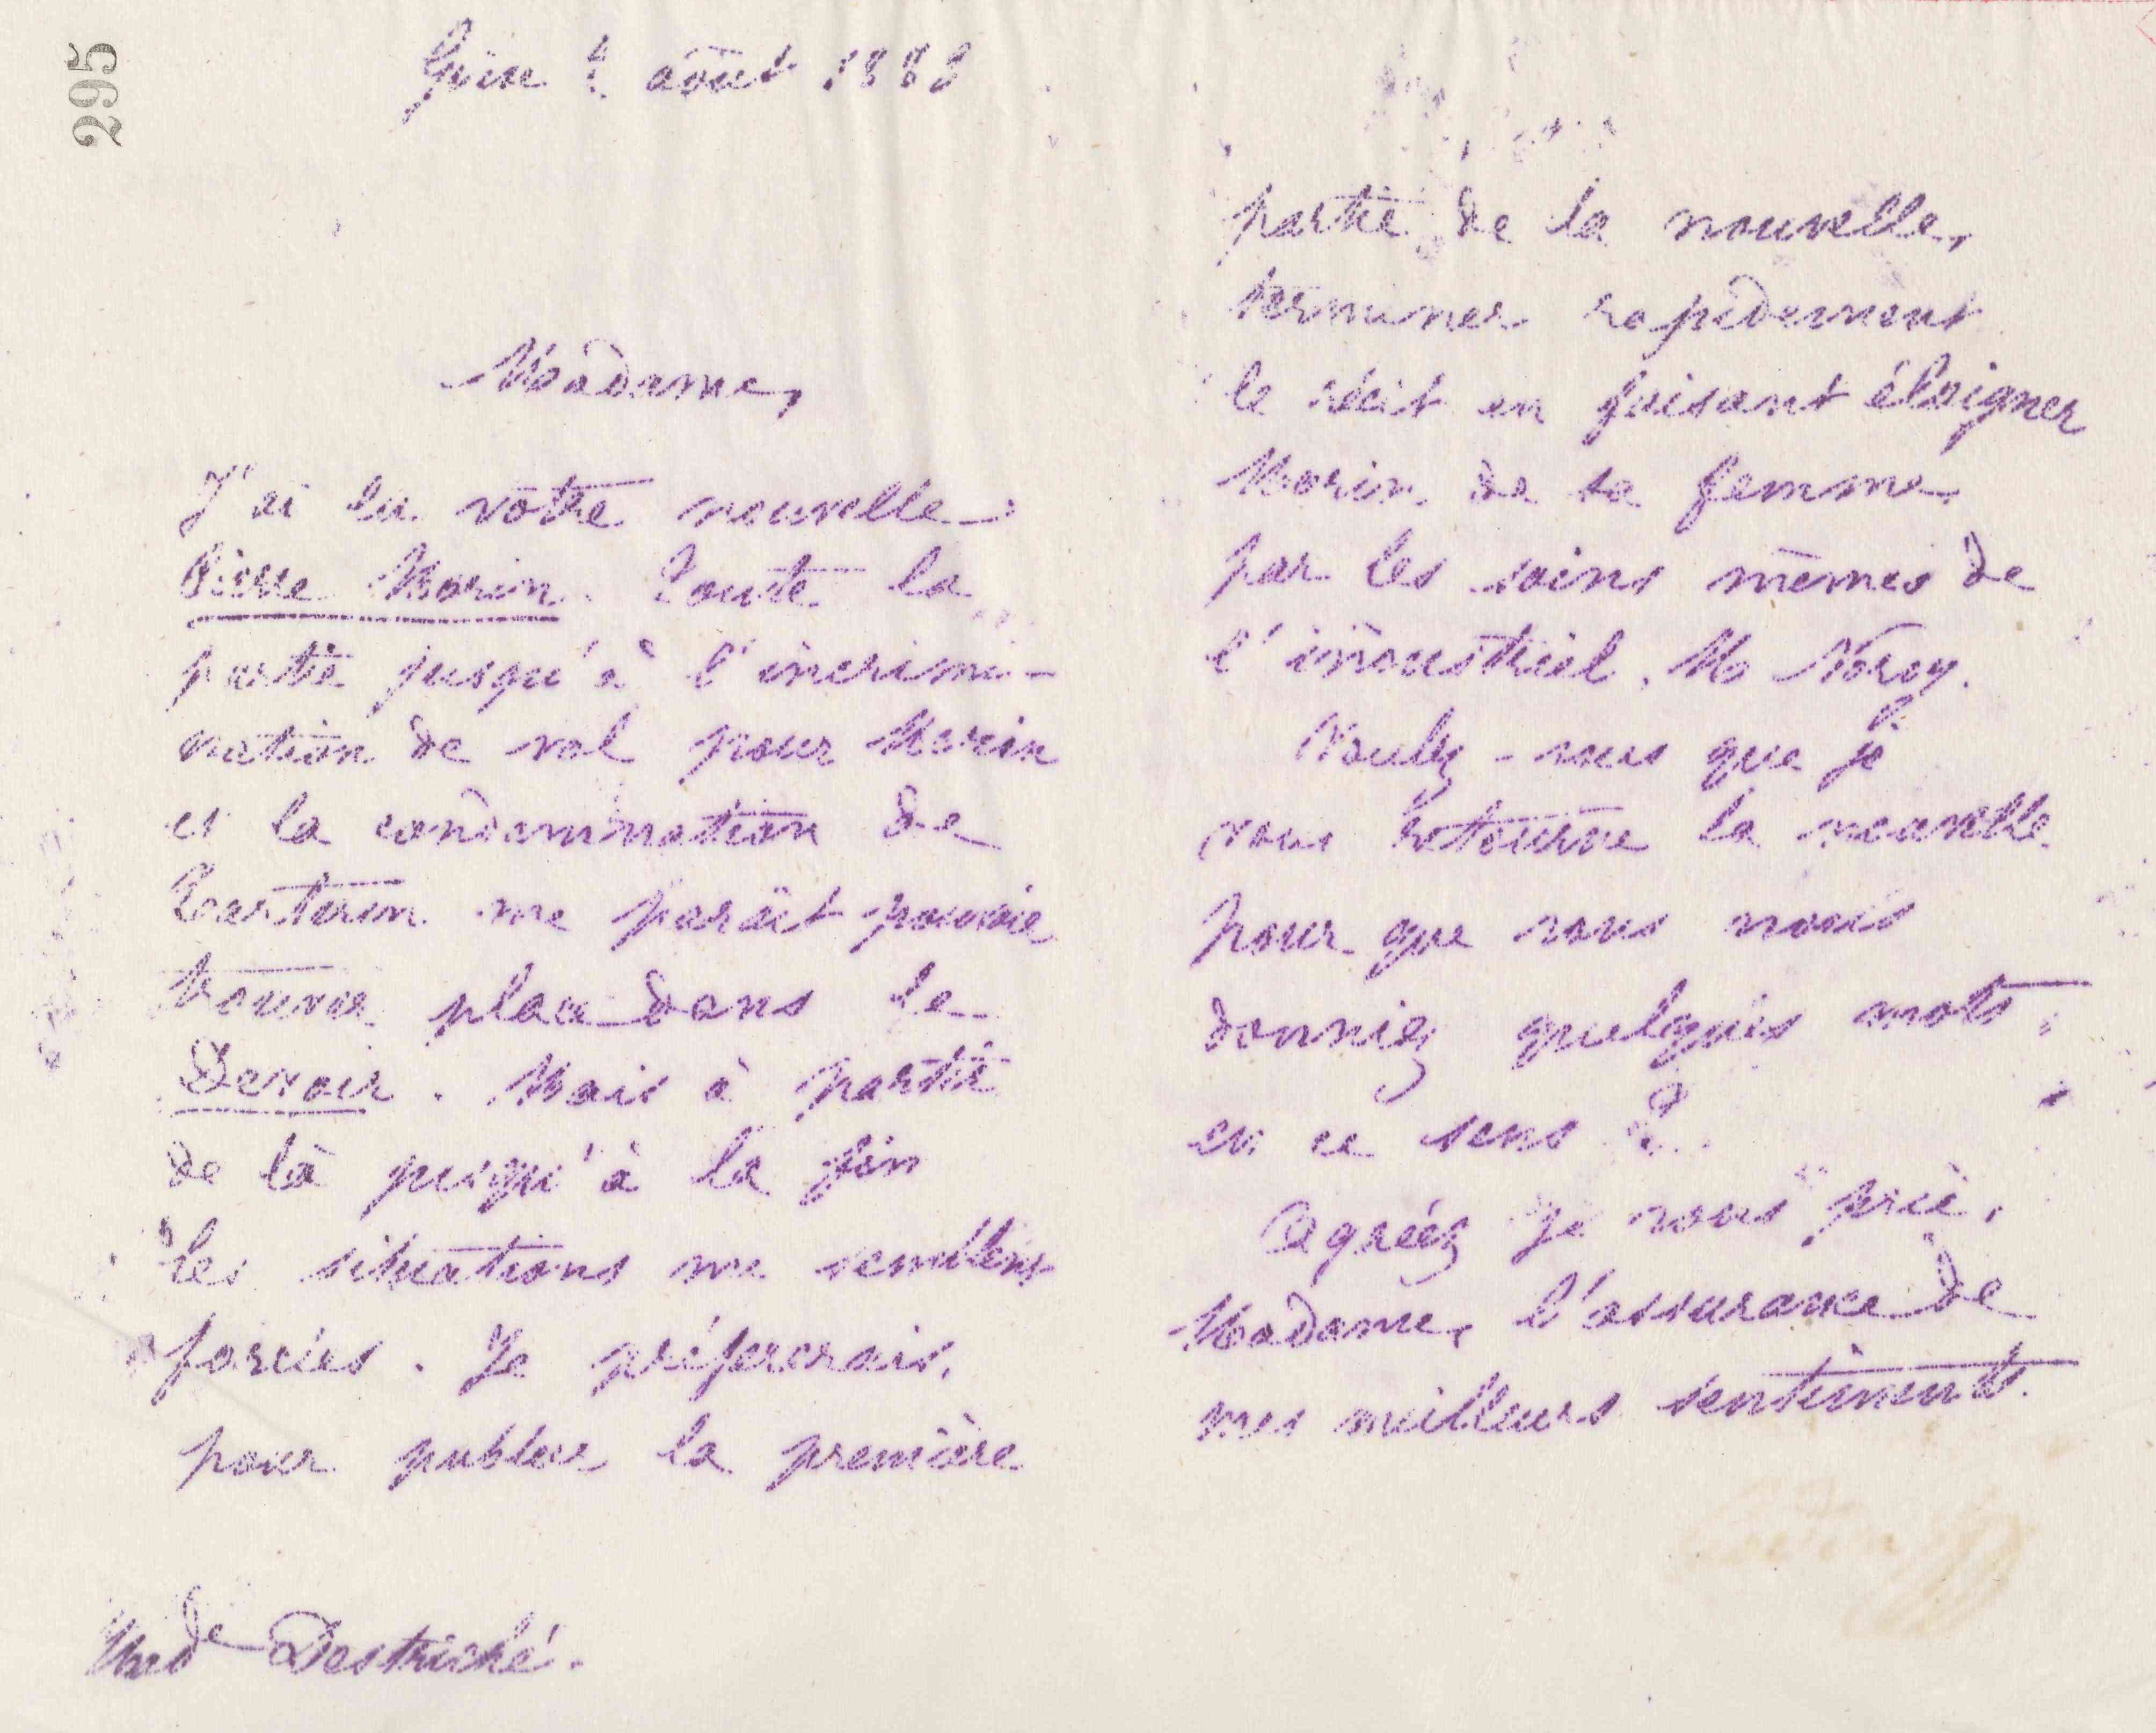 295
Guise août 188
Madame,
J'ai lu votre nouvelle
Pierre Morin. Toute la
partie jusqu'à l'incrimi-
nation de vol pour Morin
et la condamnation de
me paraît pouvoir
trouver place dans le
Devoir. Mais à partir
de là jusqu'à la fin
les situations me semblent
forcées. Je préférerais,
pour publier la première
partie de la nouvelle,
terminer rapidement
le récit en faisant éloigner
Morin de sa femme,
par les soins mêmes de
l'industriel, M Noroy.
Voulez-vous que je
vous retourne la nouvelle
pour que vous nous
donniez quelques mots
en ce sens ?
Agréez je vous prie,
Madame, l'assurance de
mes meilleurs sentiments.
Mad de Destriché.